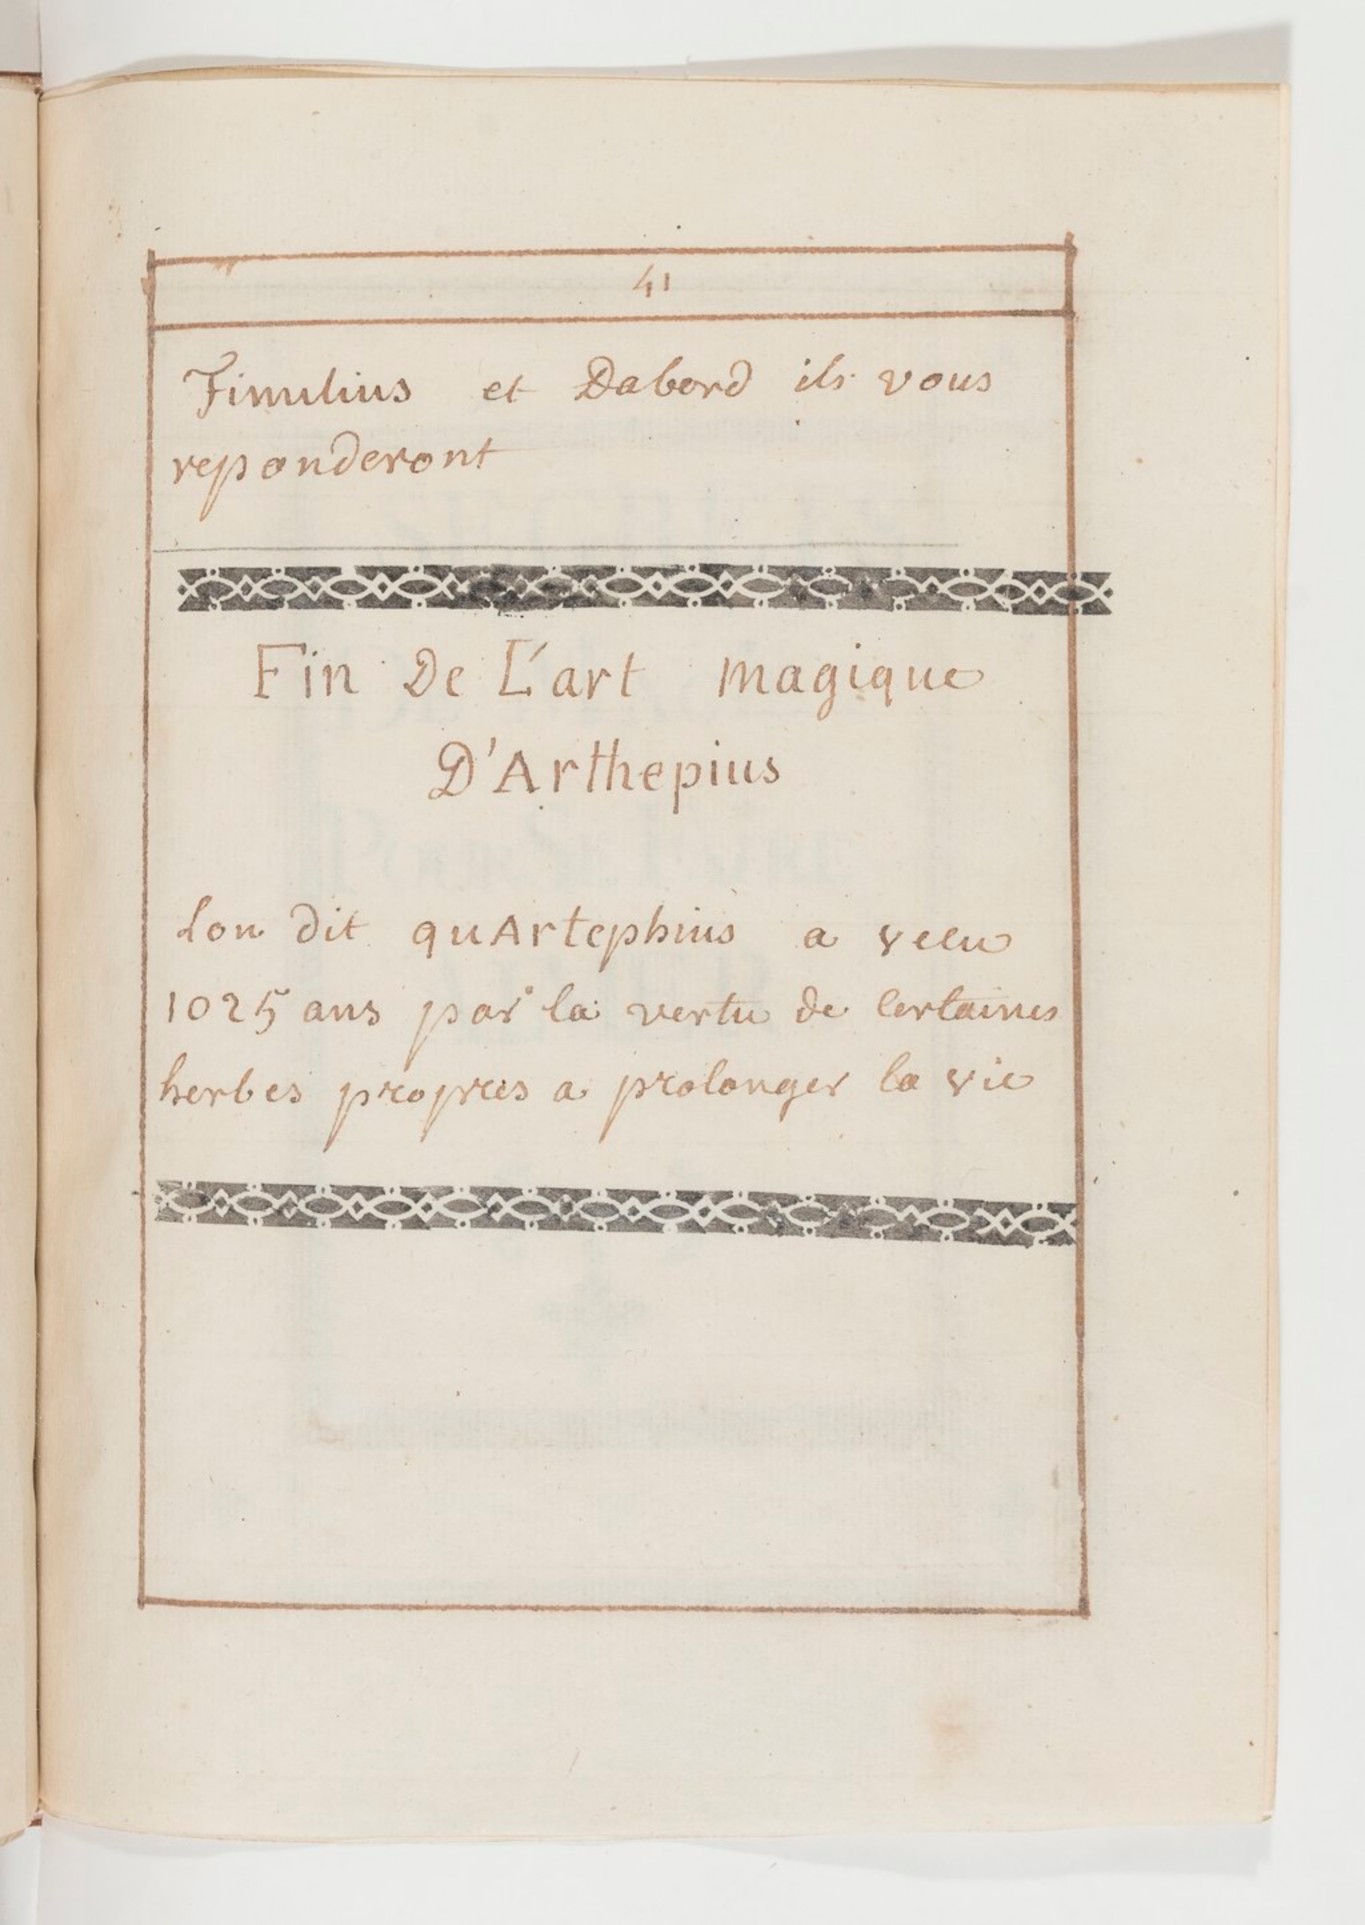 41
Fimulius et Dabord ils vous
reponderont
Fin De L'art magique
D'Arthepius
Lon dit quArtephius a vecu
1025 ans par la vertu de certaines
herbes propres a prolonger la vie